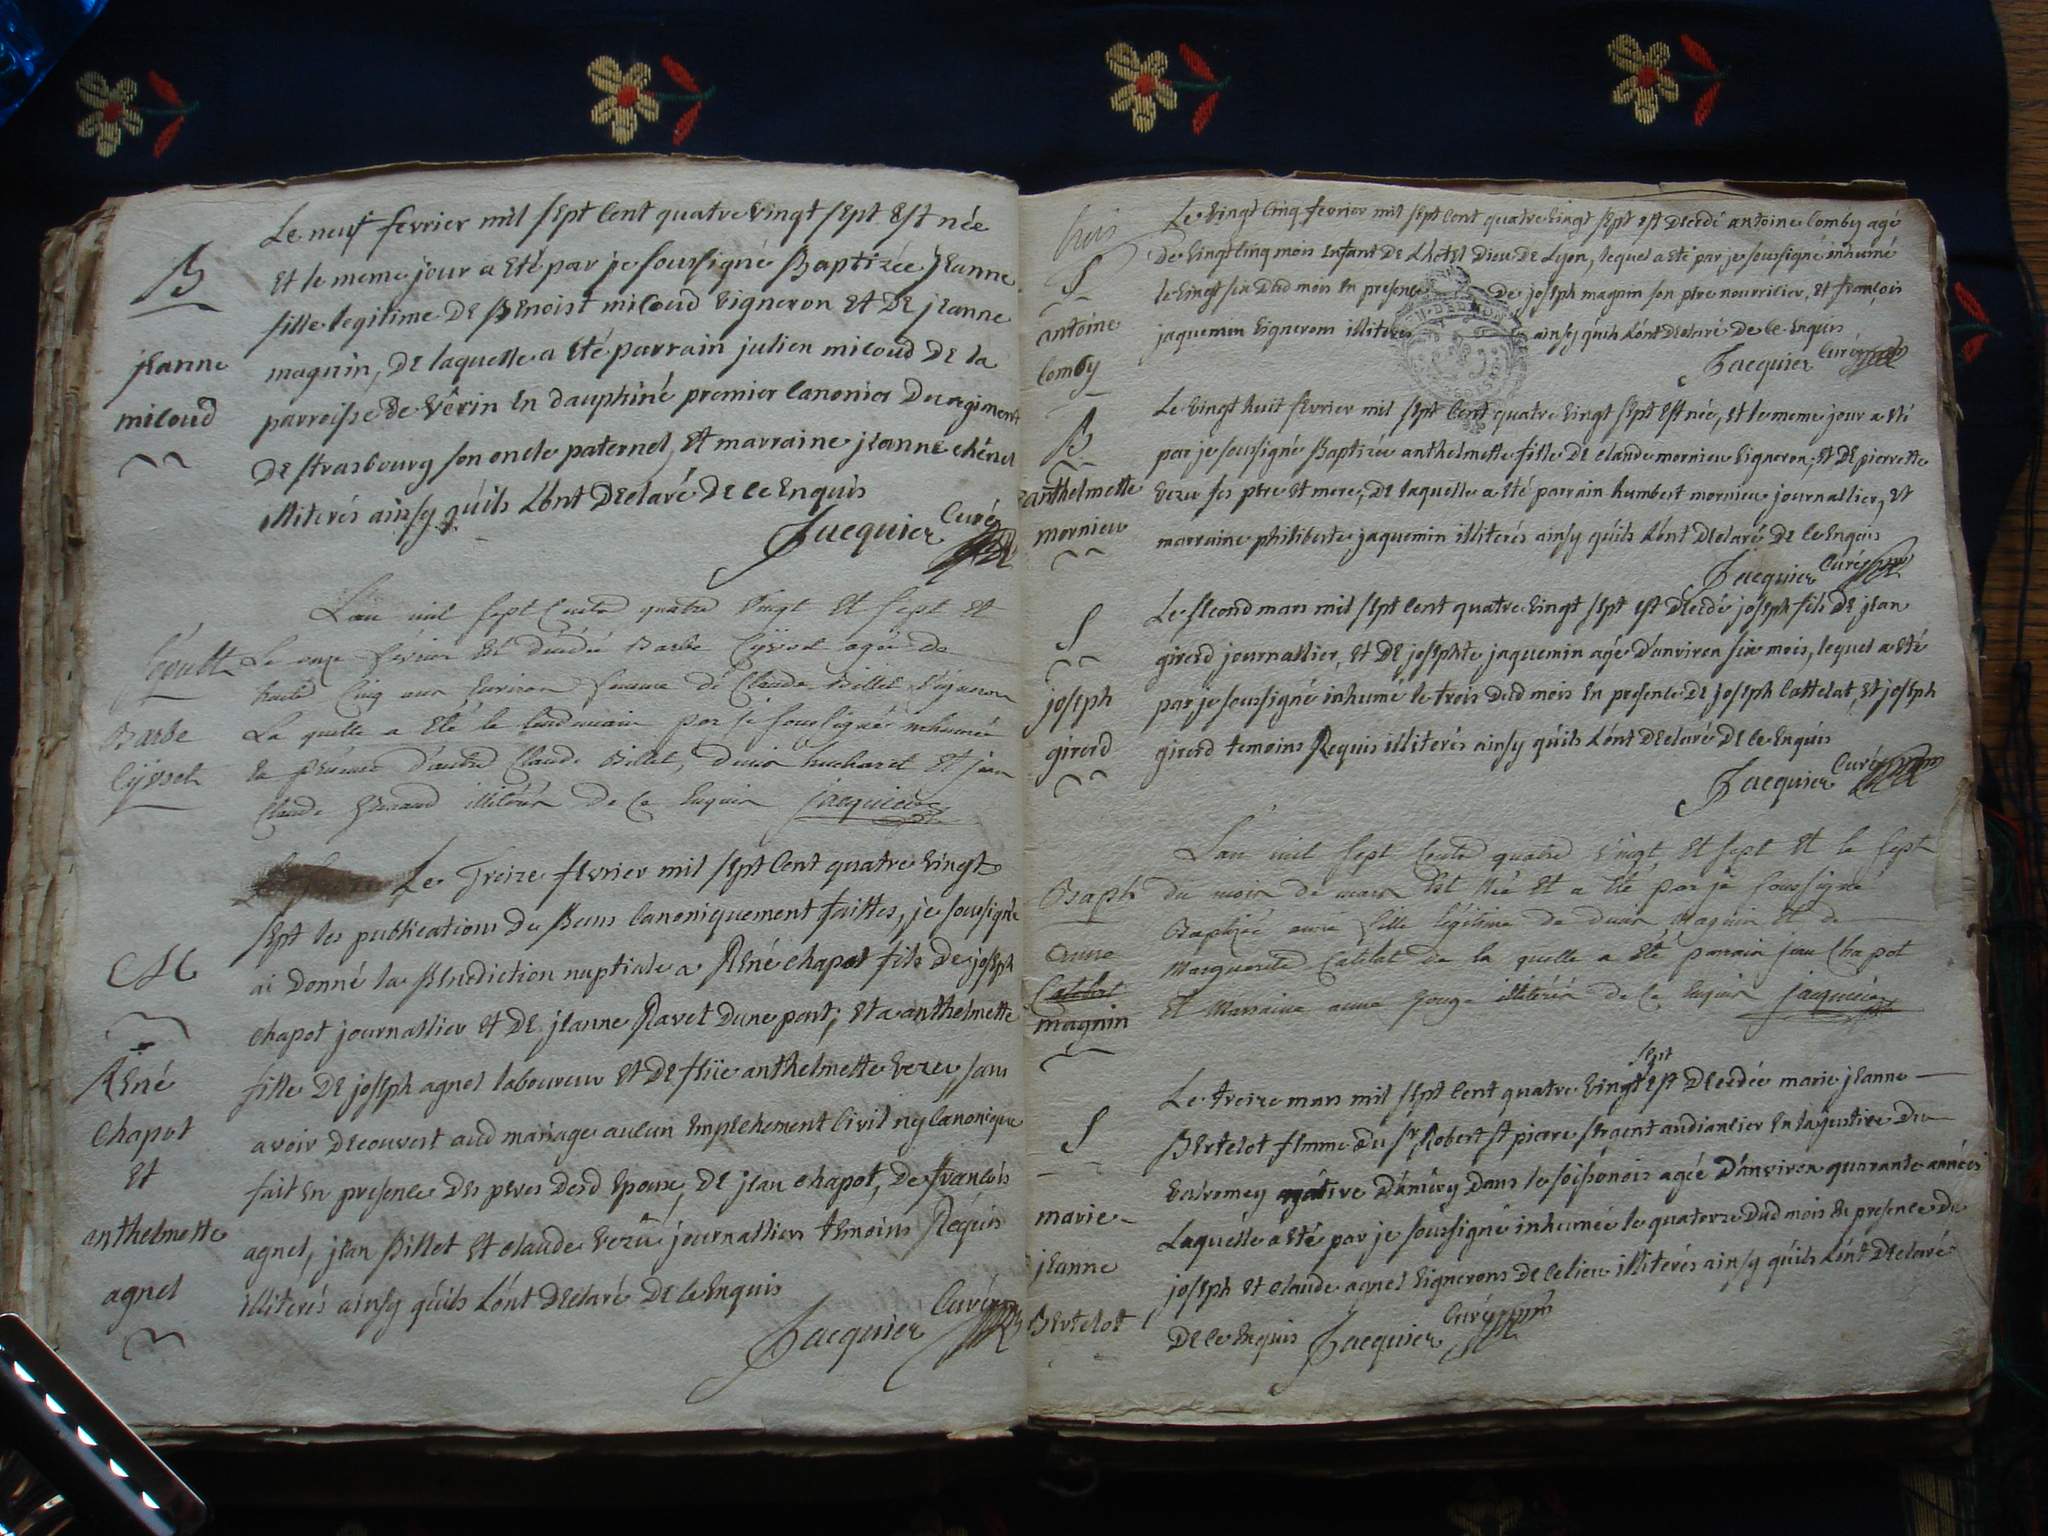 B
jeanne
micoud
Le neuf fevrier mil sept cent quatre vingt sept est née
et le meme jour a eté par je soussigné Baptizée jeanne
fille legitime de Benoist micoud vigneron et de jeanne
magnin, de laquelle a eté parrain julien micoud de la
parroisse de vêrin en dauphiné premier canonier du regiment
de strasbourg son oncle paternel, et marraine jeanne chênel
illiterés ainsy quils l'ont declaré de ce enquis
Jacquier Curé
sépult
Barbe
L'an mil sept cents quatre vingt et sept et
Le onze février est décédée Barbe agée de
trente cinq ans environ femme de Claude Billet vigneron
La quelle a eté le lendemain par je soussigné inhumée
en présence d'autre Claude Billet, et jean
Claude illitérés de ce enquis jacquier
M
René
chapot
et
anthelmette
agnel
Le Treize fevrier mil sept cent quatre vingt
sept les publications de Bans canoniquement faittes, je soussigné
ai donné la Benediction nuptiale a René chapot fils de joseph
chapot journallier et de jeanne Ravet dune part; et a anthelmette
fille de joseph agnel laboureur et de feüe anthelmette vezu, sans
avoir decouvert aud mariage aucun empechement civil ny canonique
fait en presence des peres desd epoux, de jean chapot, de francois
agnel, jean Billet et claude vezû journalliers temoins Requis
illiterés ainsy quils l'ont declaré de ce enquis
Jacquier Curé
S
antoine
comby
Le vingt cinq fevrier mil sept cent quatre vingt sept est decedé antoine comby agé
de vingt cinq mois enfant de Lhotel dieu de Lyon, lequel a eté par je soussigné inhumé
le vingt six dud mois en presence de joseph magnin son pere nourricier, et francois
jaquemin vignerons illiterés ainsy quils l'ont declaré de ce enquis
Jacquier Curé
B
anthelmette
mornieu
Le vingt huit fevrier mil sept cent quatre vingt sept est née, et le meme jour a eté
par je soussigné Baptizée anthelmette fille de claude mornieu vigneron, et de pierrette
vezu ses pere et mere, de laquelle a eté parrain humbert mornieu journallier, et
marraine philiberte jaquemin illiterés ainsy quils l'ont declaré de ce enquis
Jacquier Curé
S
joseph
girerd
Le second mars mil sept cent quatre vingt sept est decedé joseph fils de jean
girerd journallier, et de josephte jaquemin agé d'anviron six mois, lequel a eté
par je soussigné inhumé le trois dud mois en presence de joseph cattelat, et joseph
girerd temoins Requis illiterés ainsy quils l'ont declaré de ce enquis
Jacquier Curé
Bapt
anne
magnin
L'an mil sept cents quatre vingt et sept et le sept
du mois de mars est née et a eté par je soussigné
Baptisée anne fille légitime de magnin et de
Marguerite Catelat de la quelle a eté parrain jean Chapot
et Marraine anne illitérés de ce enquis jacquier
S
marie
jeanne
Bertelot
Le treize mars mil sept cent quatre vingt sept est decedée marie jeanne
Bertelot femme du sr Robert st pierre sergent audiancier en la justice du
valromey native d'amivy dans le soissonois agée d'anviron quarante années
Laquelle a eté par je soussigné inhumée le quatorze dud mois en presence de
joseph et claude agnel vignerons de ce lieu illiterés ainsy quils l'ont declaré
de ce enquis Jacquier Curé